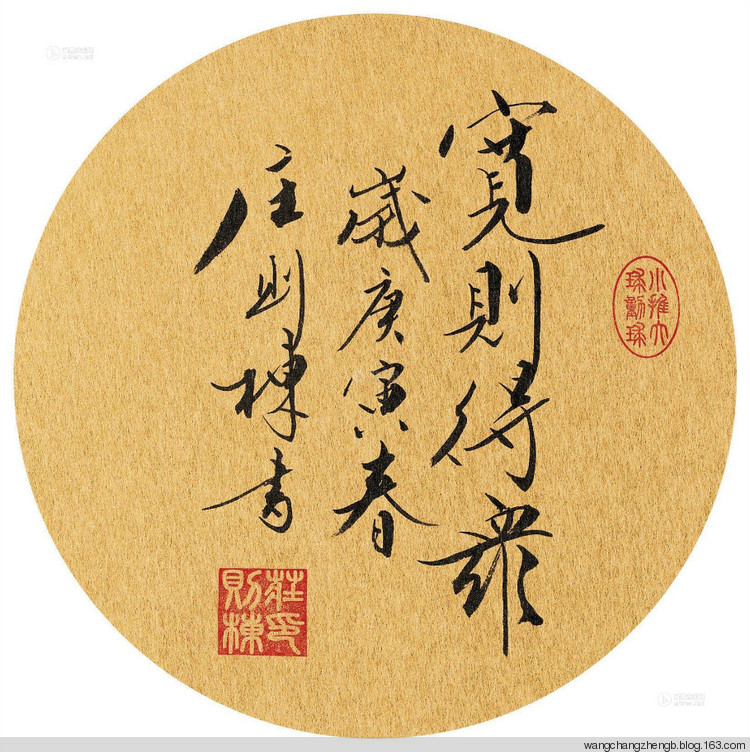 寬則得眾
歲庚寅春
庄則棟书
小球推大球
莊則棟印
wangchangzhengb.blog.163.com